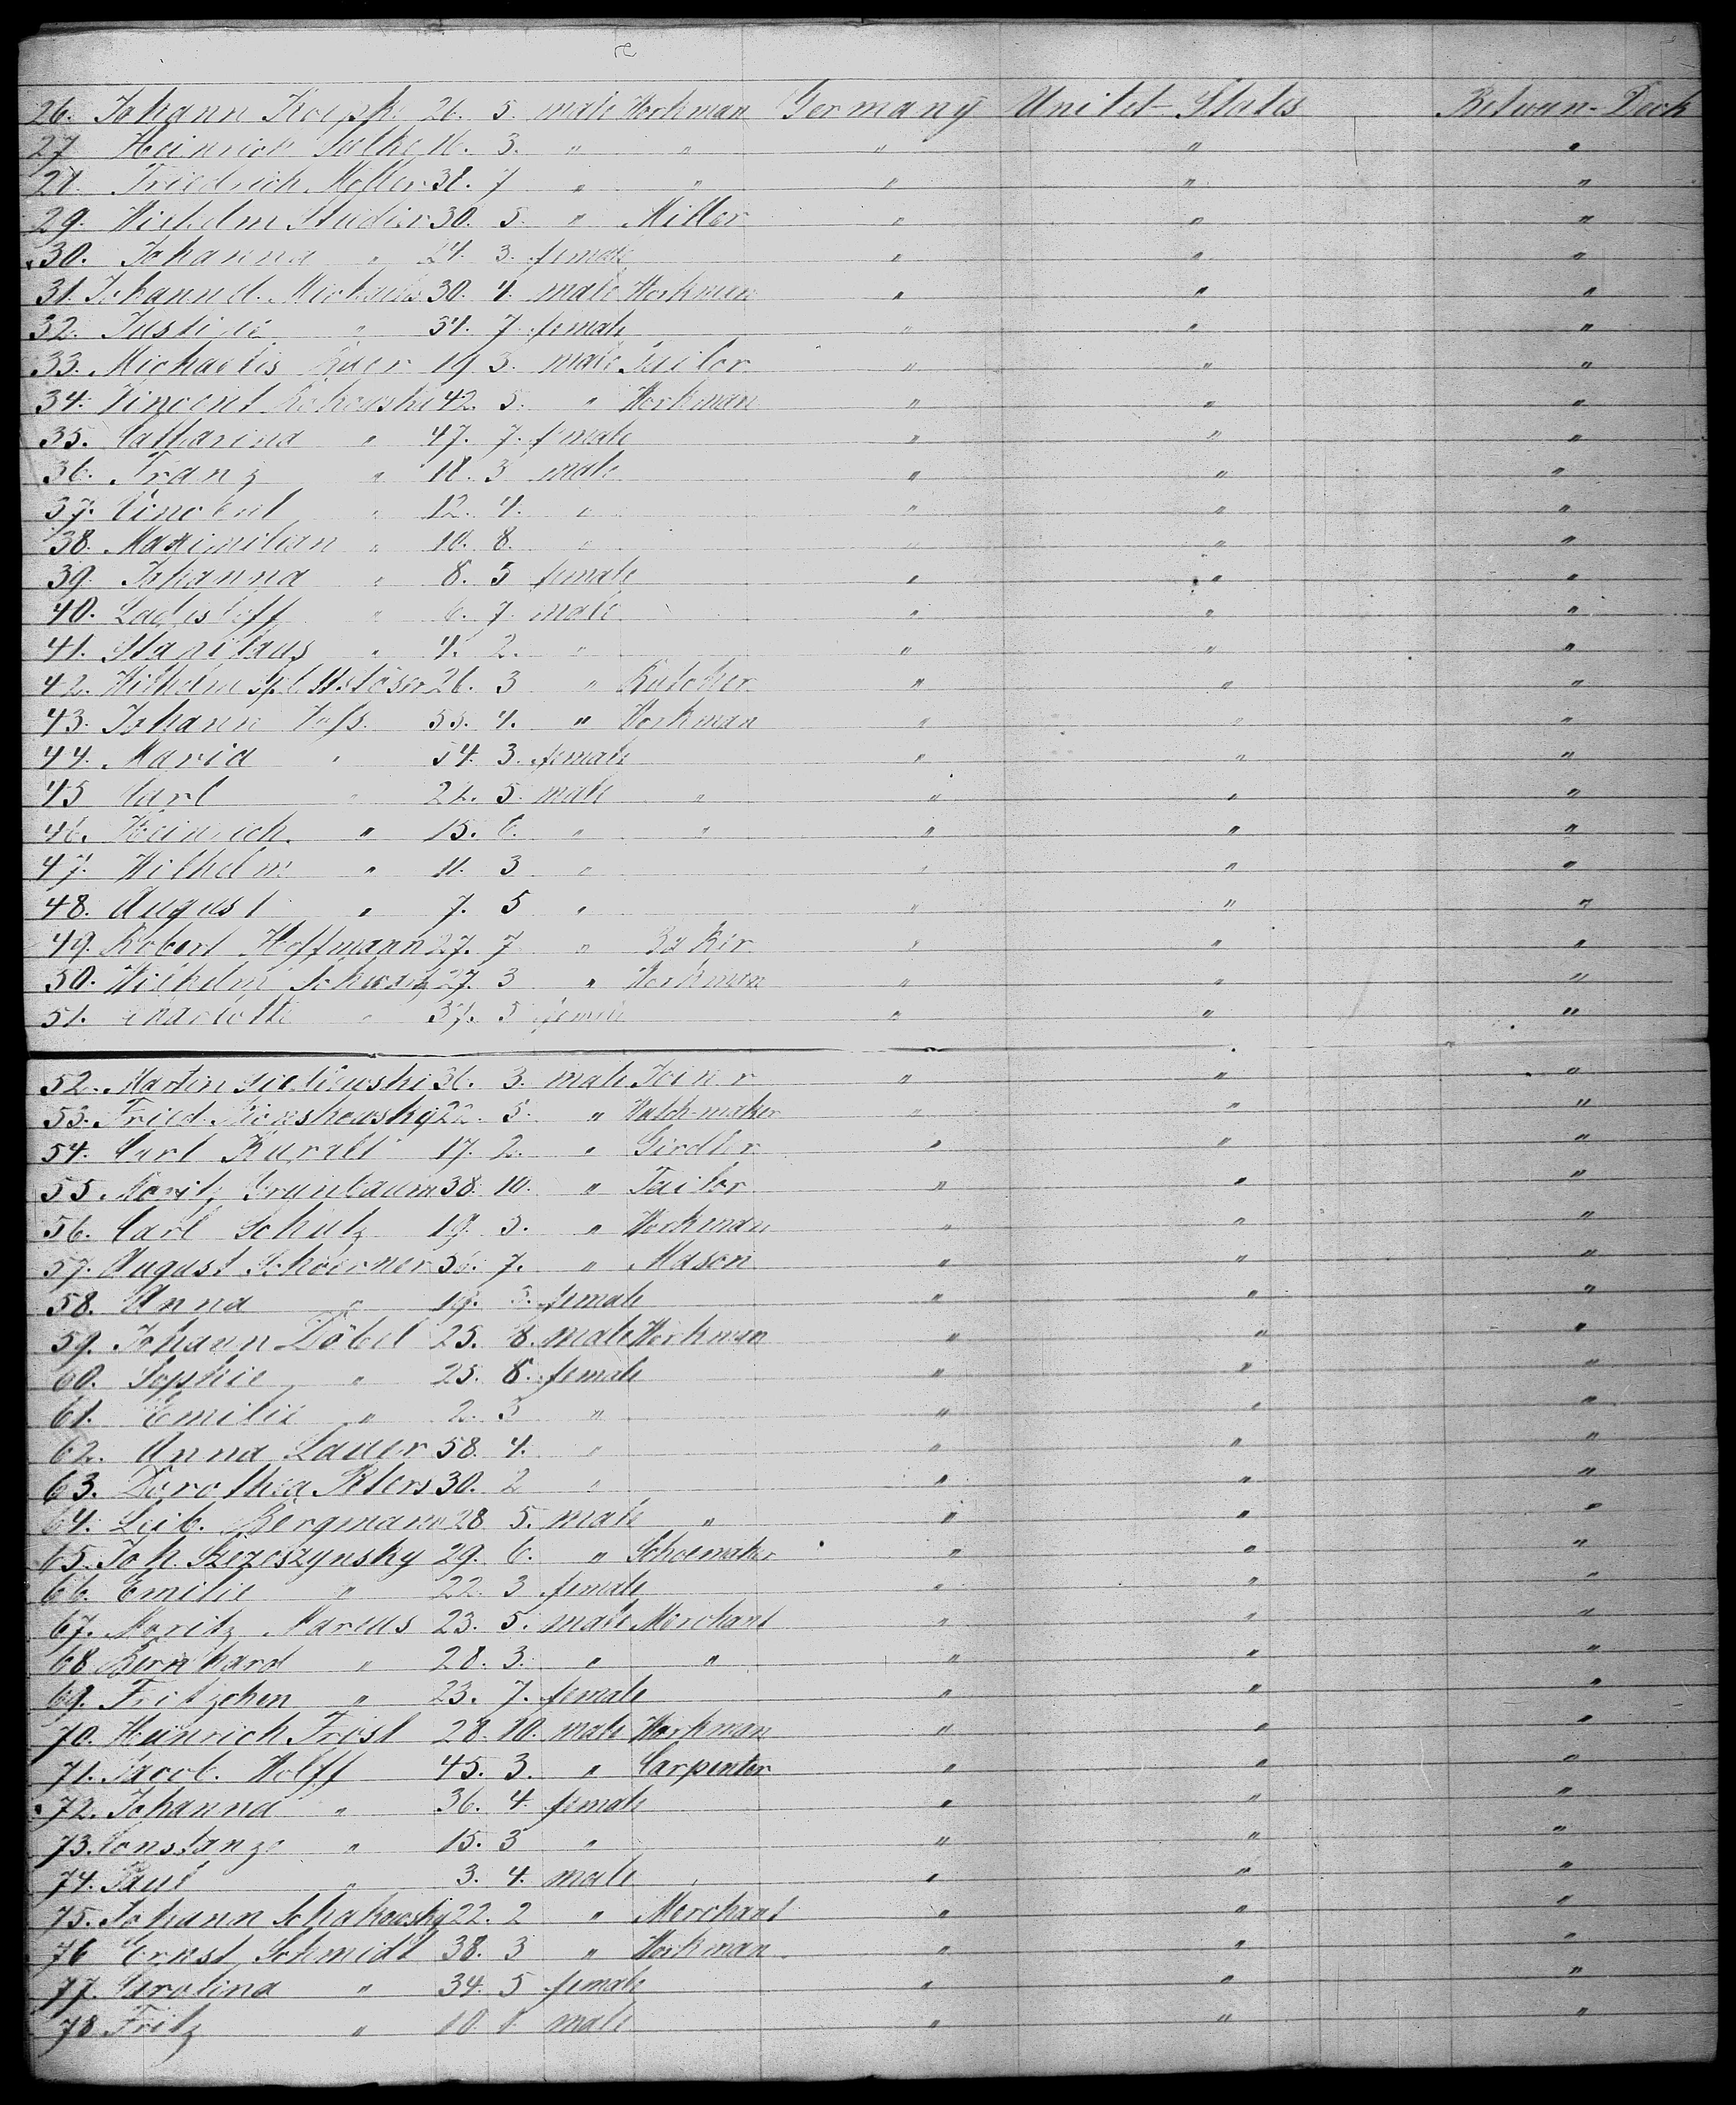 26. Johann Koepk 26. 5. male Workman Germany Unitet-States Between-Deck
27 Heinrich 16. 3. " " " " "
28. Friedrich Moller 38. 7 " " " " "
29. Wilhelm Studier 30. 5. " Miller " " "
30. Johanna " 24. 3. female " " "
31. Johann d. 30. 4. male Workman " " "
32. Justine " 34. 7. female " " "
33. Michaelis 19 3. male Tailor " " "
34. Vincent 42. 5. " Workman " " "
35. Catharina " 47. 7. female " " "
36. Franz " 18. 3 male " " "
37. Vincent " 12. 4. " " " "
38. Maximilian " 10. 8. " " " "
39. Johanna " 8. 5 female " " "
40. Ladisloff " 6. 7. male " " "
41. Stanislaus " 4. 2. " " " "
42. Wilhelm 26. 3 " Butcher " " "
43. Johann 55. 4. " Workman " " "
44. Maria " 54. 3. female " " "
45 Carl " 22. 5. male " " " "
46. Heinrich " 15. 6. " " " " "
47. Wilhelm " 11. 3 " " " "
48. August " 7. 5 " " " "
49. Robert Hoffmann 27. 7 " Baker " " "
50. Wilhelm 27. 3 " Workman " " "
51. Charlotte " 37. 5 female " " "
52. Martin 36. 3. male Joiner " " "
53. Fried. 22. 5. " Watch-maker " " "
54. Carl 17. 2. " Girdler " " "
55. Moritz Grunbaum 38. 10. " Tailor " " "
56. Carl Schulz 19. 3. " Workman " " "
57. August Schoerner 36. 7. " Mason " " "
58. Anna " 19. female " " "
59. Johann Döbel 25. 8. male Workman " " "
60. Sophie " 25. 8. female " " "
61. Emilie " 2. 3 " " " "
62. Anna Lauer 58. 4. " " " "
63. Dorothea Peters 30. 2 " " " "
64. Leib. Bergmann 28 5. male " " " "
65. Joh. Szezeszynsky 29. 6. " Schoemaker " " "
66. Emilie " 22. 3 female " " "
67. Moritz Marcus 23. 5. male Merchant " " "
68 Bernhard " 28. 3. " " " " "
69. Fritzchen " 23. 7. female " " "
70. Heinrich Frost 28. 10. male Workman " " "
71. Jacob. Wolff 45. 3. " Carpenter " " "
72. Johanna " 36. 4 female " " "
73. Constanze " 15. 3 " " " "
74. Paul " 3. 4. male " " "
75. Johann Schakowsky 22. 2 " Merchant " " "
76 Ernst Schmidt 38. 3 " Workman " " "
77. Carolina " 34. 5 female " " "
78 Fritz " 10. 8 male " " "